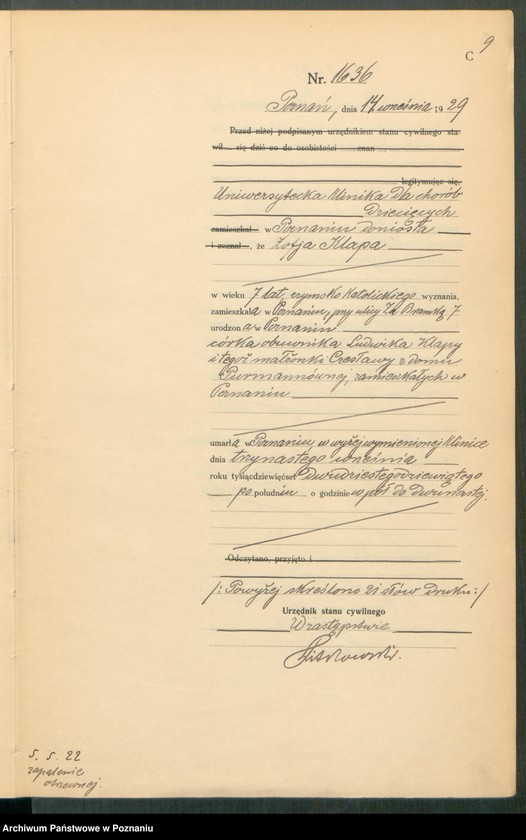 C 9
Nr. 1636
Poznań, dnia 14 września 1929
Przed niżej podpisanym urzędnikiem stanu cywilnego sta-
wił się dziś co do osobistości znan
legitymując się,
Uniwersytecka Klinika Dla chorób
Dziecięcych
zamieszkał w Poznaniu doniosła
i zeznał, że Zofja Klapa
w wieku 7 lat, rzymsko Katolickiego wyznania,
zamieszkała w Poznaniu, przy ulicy Za Bramką 7
urodzona w Poznaniu
córka obuwnika Ludwika Klapy
i tegoż małżonki Czesławy z domu
Purmannównej, zamieszkałych w
Poznaniu
umarła w Poznaniu, w wyżej wymienionej Klinice
dnia trzynastego września
roku tysiącdziewięćset dwudziestegodziewiątego
po południu o godzinie w pół do dwunastej.
Odczytano, przyjęto i
/: Powyżej skreślono 21 słów druku :/
Urzędnik stanu cywilnego
W zastępstwie
5. 5. 22
zapalenie
otrzewnej.
Archiwum Państwowe w Poznaniu